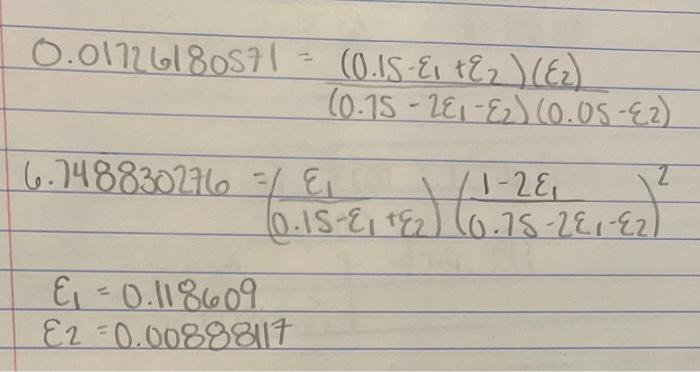 0.01726180571 = (0.15-ε1+ε2)(ε2)
(0.75-2ε1-ε2)(0.05-ε2)
6.748830276 = (ε1 / 0.15-ε1+ε2) (1-2ε1 / 0.75-2ε1-ε2)²
ε1 = 0.118609
ε2 = 0.00888117